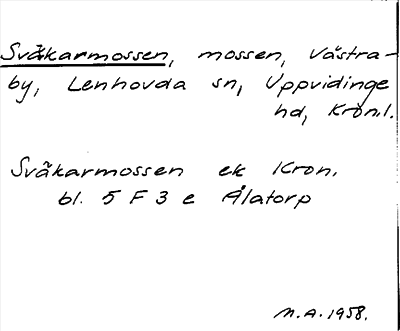 Svåkarmossen, mossen, Västra-
by, Lenhovda sn, Uppvidinge
hd, Kron.l.
Svåkarmossen ek Kron.
bl. 5 F 3 e Ålatorp
M.A. 1958.